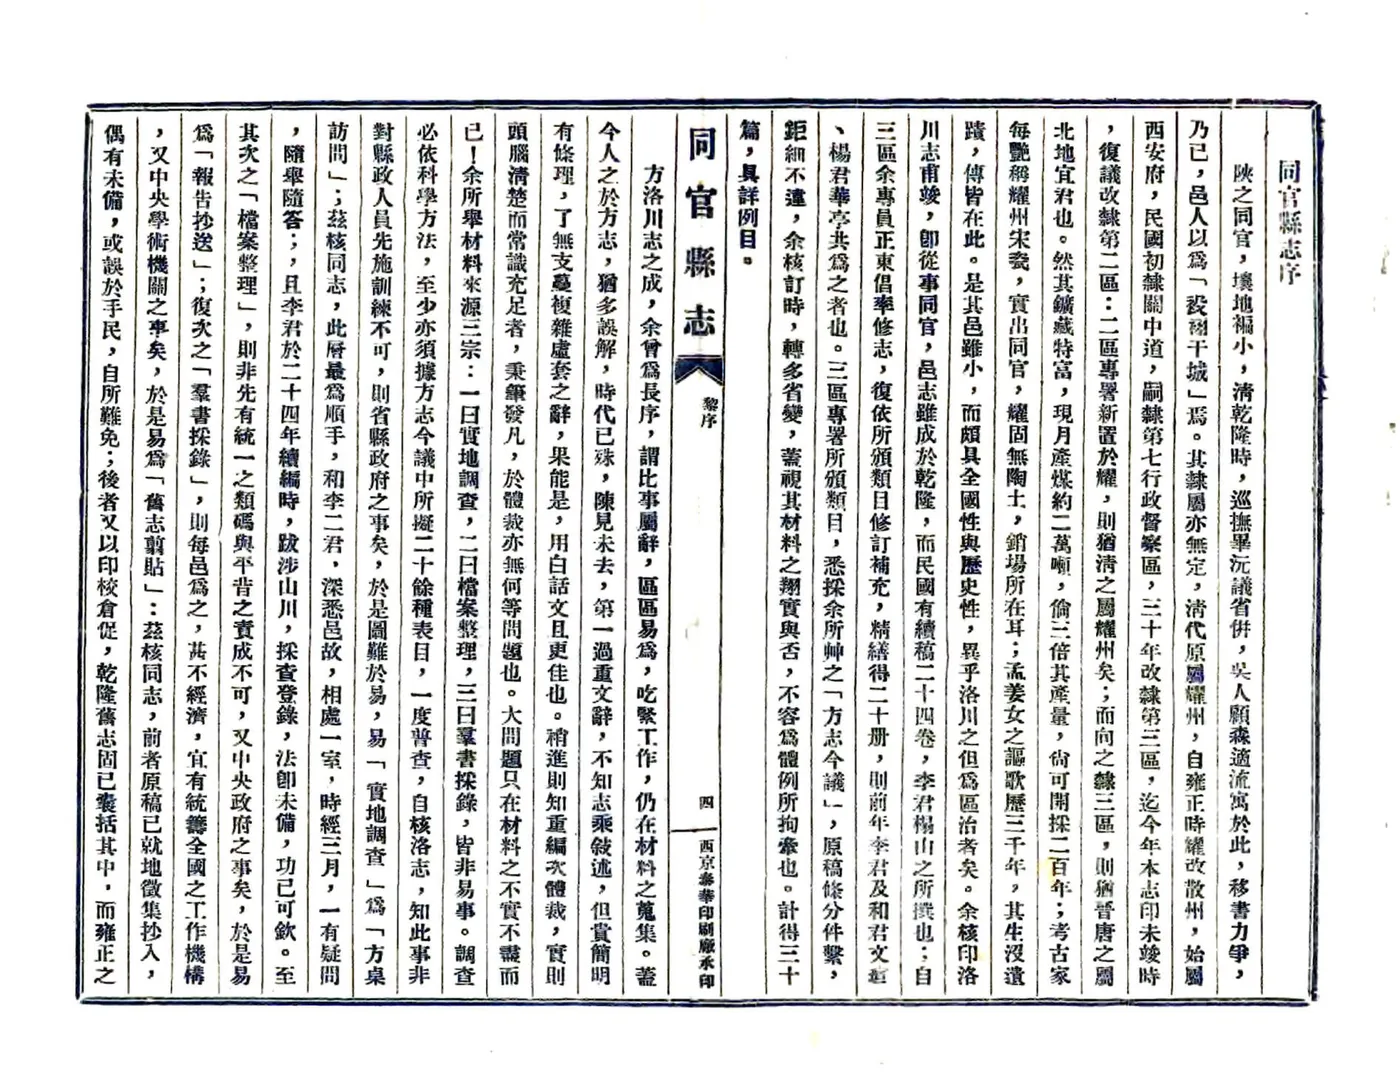 同官縣志序
陝之同官，壤地褊小，淸乾隆時，巡撫畢沅議省併，吳人顧森適流寓於此，移書力爭，
乃已，邑人以爲「殺翮干城」焉。其隸屬亦無定，淸代原屬耀州，自雍正時耀改散州，始屬
西安府，民國初隸關中道，嗣隸第七行政督察區，三十年改隸第三區，迄今年本志印未竣時
，復議改隸第二區：二區專署新置於耀，則猶淸之屬耀州矣；而向之隸三區，則猶晉唐之屬
北地宜君也。然其鑛藏特富，現月產煤約二萬噸，倘三倍其產量，尙可開採二百年；考古家
每艷稱耀州宋瓷，實出同官，耀固無陶土，銷場所在耳；孟姜女之謳歌歷三千年，其生沒遺
蹟，傳皆在此。是其邑雖小，而頗具全國性與歷史性，異乎洛川之但爲區治者矣。余核印洛
川志甫竣，卽從事同官，邑志雖成於乾隆，而民國有續稿二十四卷，李君楊山之所撰也；自
三區余專員正東倡率修志，復依所頒類目修訂補充，精繕得二十册，則前年李君及和君文
、楊君華亭共爲之者也。三區專署所頒類目，悉採余所艸之「方志今議」，原稿條分件繫，
鉅細不遺，余核訂時，轉多省變，蓋視其材料之翔實與否，不容爲體例所拘牽也。計得三十
篇，具詳例目。
同官縣志
黎序
四
西京泰華印刷廠承印
方洛川志之成，余曾爲長序，謂比事屬辭，區區易爲，吃緊工作，仍在材料之蒐集。蓋
今人之於方志，猶多誤解，時代已殊，陳見未去，第一過重文辭，不知志乘敍述，但貴簡明
有條理，了無支蔓複雜虛套之辭，果能是，用白話文且更佳也。稍進則知重編次體裁，實則
頭腦淸楚而常識充足者，秉筆發凡，於體裁亦無何等問題也。大問題只在材料之不實不盡而
已！余所舉材料來源三宗：一曰實地調查，二曰檔案整理，三曰羣書採錄，皆非易事。調查
必依科學方法，至少亦須據方志今議中所擬二十餘種表目，一度普查，自核洛志，知此事非
對縣政人員先施訓練不可，則省縣政府之事矣，於是圖難於易，易「實地調查」爲「方桌
訪問」；茲核同志，此層最爲順手，和李二君，深悉邑故，相處一室，時經三月，一有疑問
，隨舉隨答；，且李君於二十四年續編時，跋涉山川，採查登錄，法卽未備，功已可欽。至
其次之「檔案整理」，則非先有統一之類碼與平昔之責成不可，又中央政府之事矣，於是易
爲「報告抄送」；復次之「羣書採錄」，則每邑爲之，甚不經濟，宜有統籌全國之工作機構
，又中央學術機關之事矣，於是易爲「舊志翦貼」：茲核同志，前者原稿已就地徵集抄入，
偶有未備，或誤於手民，自所難免；後者又以印校倉促，乾隆舊志固已囊括其中，而雍正之